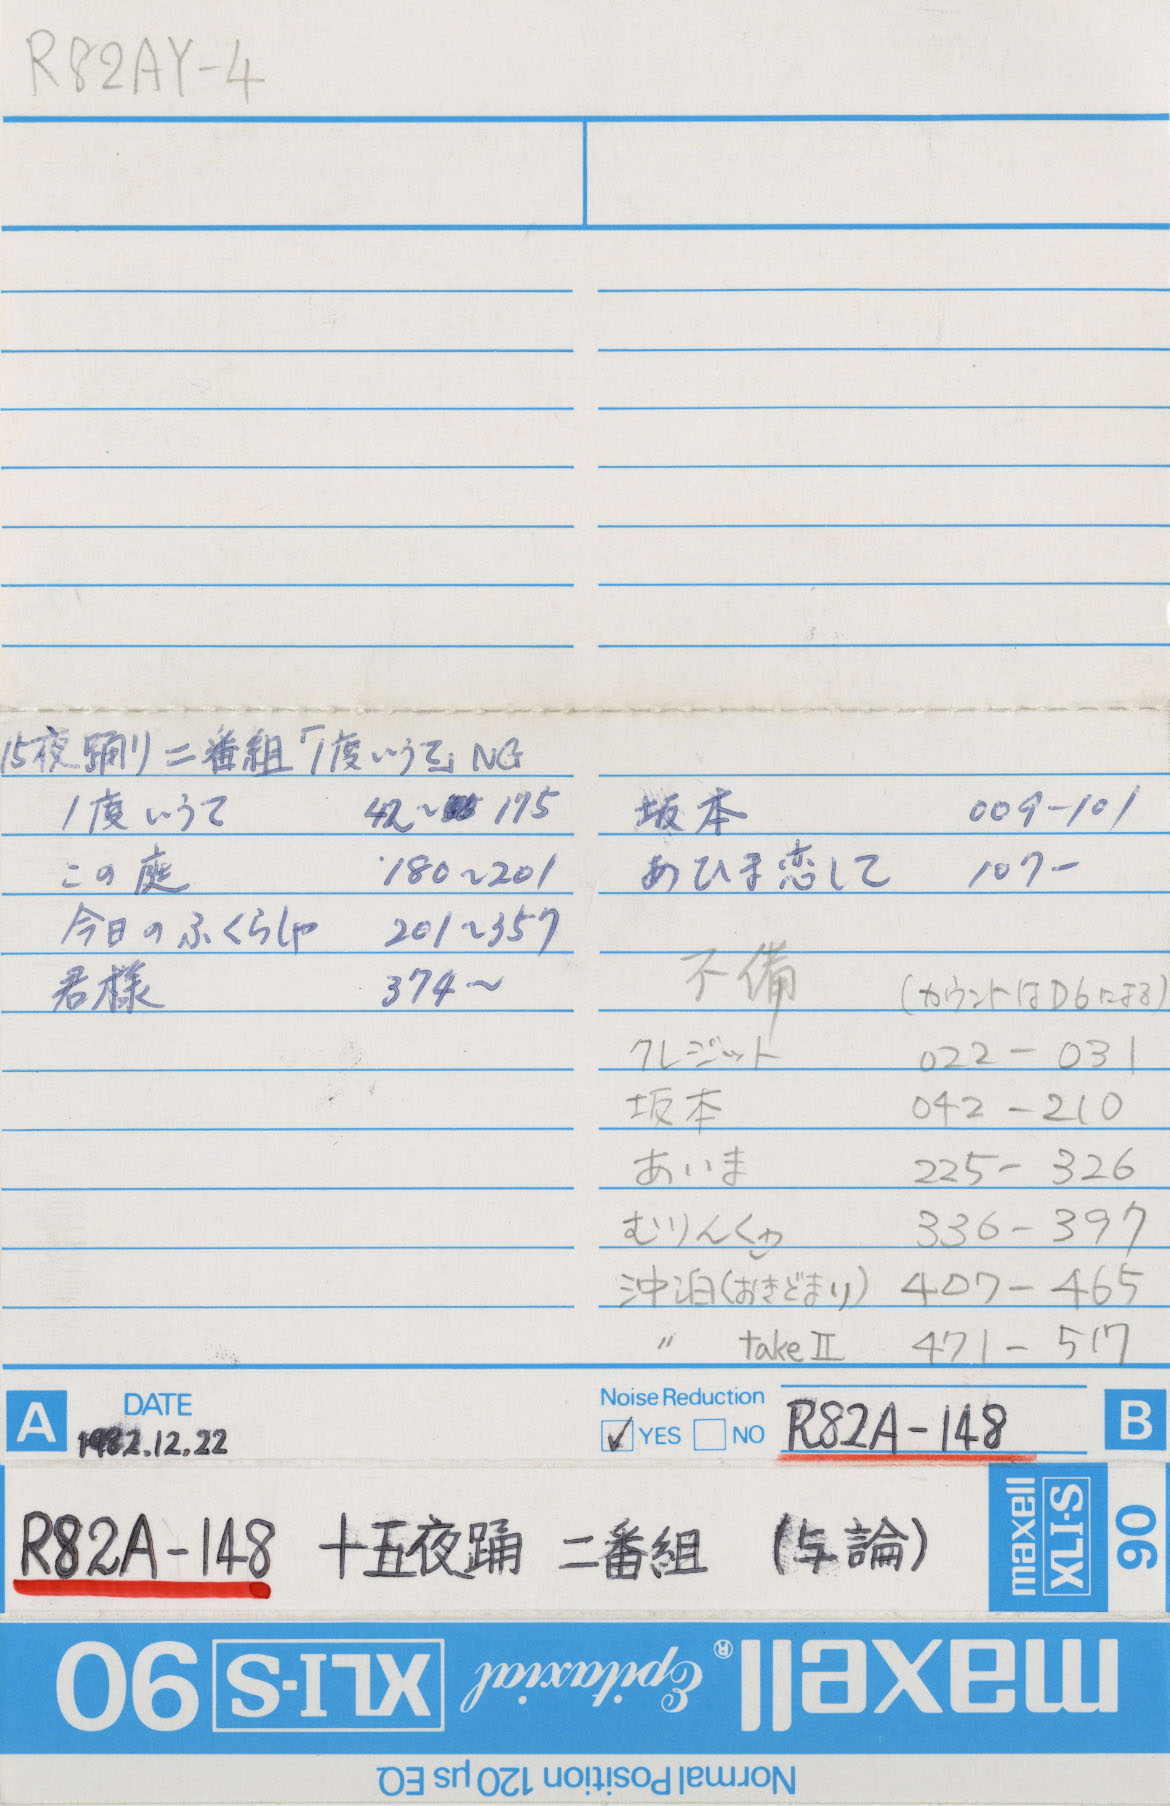 R82AY-4
15夜踊り二番組「1度いうて」NG
1度いうて 42~ 175
この庭 180~201
今日のふくらしゃ 201~357
君様 374~
坂本 009-101
あひま恋して 107-
不備 (カウントはD6による)
クレジット 022-031
坂本 042-210
あいま 225-326
むりんくゎ 336-397
沖泊(おきどまり) 407-465
〃 take II 471-517
A DATE
1982.12.22
Noise Reduction
YES NO
R82A-148
B
R82A-148 十五夜踊 二番組 (与論)
maxell
XLI-S
90
maxell® Epitaxial XLI-S 90
Normal Position 120 μs EQ